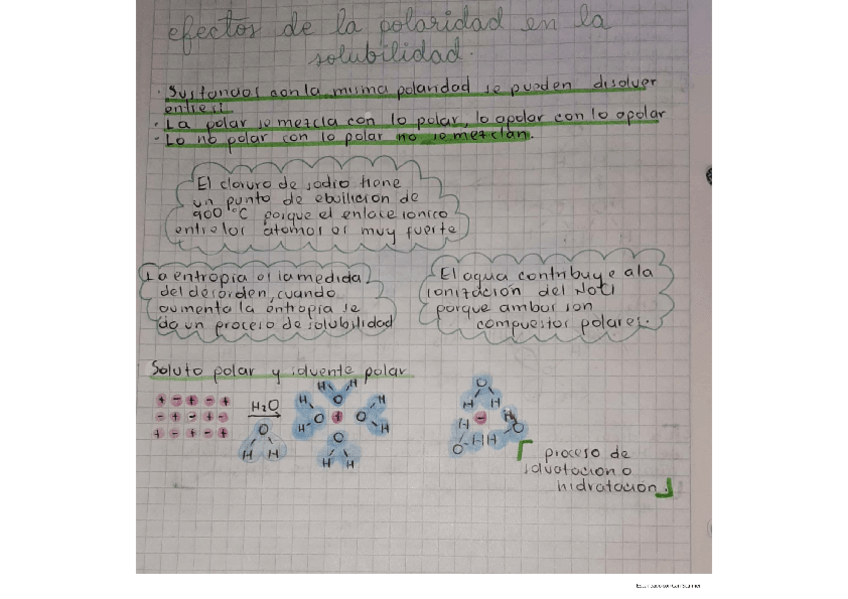 efectos de la polaridad en la
solubilidad.
· Sustancias con la misma polaridad se pueden disolver
entre sí.
· La polar se mezcla con lo polar, lo apolar con lo apolar
· Lo no polar con lo polar no se mezclan.
El cloruro de sodio tiene
un punto de ebullición de
900 °C porque el enlace ionico
entre los átomos es muy fuerte
La entropia es la medida
del desorden, cuando
aumenta la entropia se
da un proceso de solubilidad
El agua contribuye a la
ionización del
porque ambos son
compuestos polares.
Soluto polar y solvente polar
+ - + - +
- + - + -
+ - + - +
H₂O
O
H H
H H
O
H O + O H
H H
O
H H
O
H H
-
H
O-H H
H
O
proceso de
solvatación o
hidratación